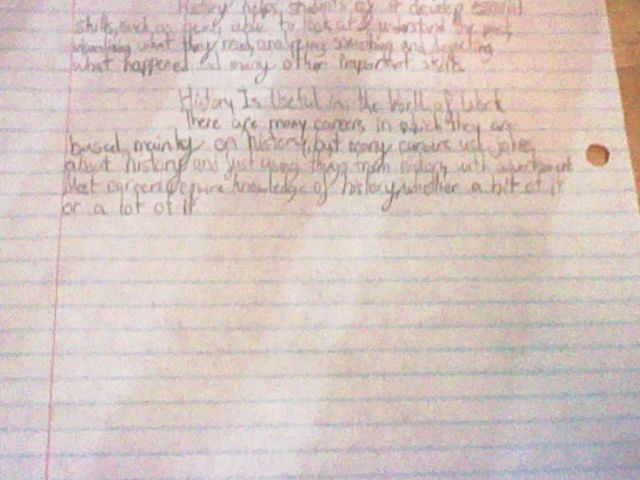 History helps students of it develop essential
skills, such as being able to look at & understand the past,
visualizing what they read, analyzing something and depicting
what happened and many other important skills.
History Is Useful in the World of Work
There are many careers in which they are
based mainly on history, but many careers use
about history and just using things from history with
Most careers require knowledge of history, whether a bit of it
or a lot of it.